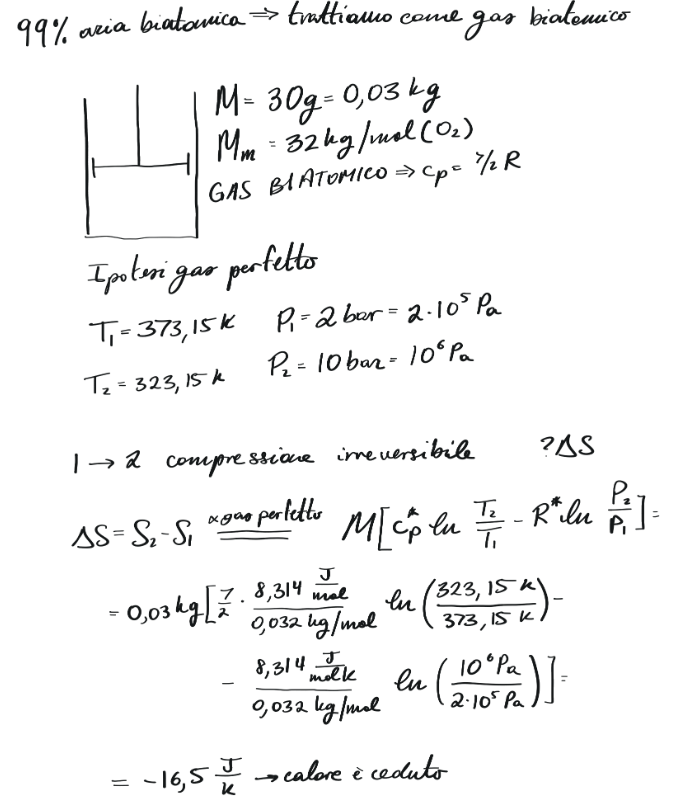 99% aria biatomica ⇒ trattiamo come gas biatomico
M = 30g = 0,03 kg
Mm = 32 kg/mol (O₂)
GAS BIATOMICO ⇒ cp = 7/2 R
Ipotesi gas perfetto
T₁ = 373,15 K P₁ = 2 bar = 2·10⁵ Pa
T₂ = 323,15 K P₂ = 10 bar = 10⁶ Pa
1 → 2 compressione irreversibile ?ΔS
ΔS = S₂ - S₁ ∝ gas perfetto = M[cp* ln T₂/T₁ - R* ln P₂/P₁] =
= 0,03 kg [7/2 · 8,314 J/mol / 0,032 kg/mol ln (323,15 K / 373,15 K) -
- 8,314 J/molK / 0,032 kg/mol ln (10⁶ Pa / 2·10⁵ Pa)] =
= -16,5 J/K → calore è ceduto